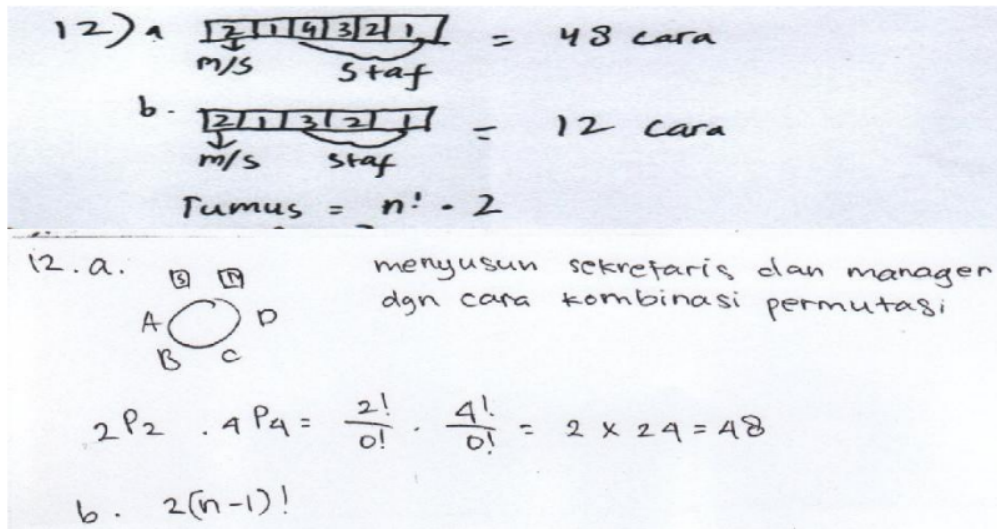 12) a 2 1 4 3 2 1 = 48 cara
m/s staf
b. 2 1 3 2 1 = 12 cara
m/s staf
rumus = n! . 2
12.a. S M menyusun sekretaris dan manager
dgn cara kombinasi permutasi
A D
B C
2P2 . 4P4 = 2!/0! . 4!/0! = 2 x 24 = 48
b. 2(n-1)!